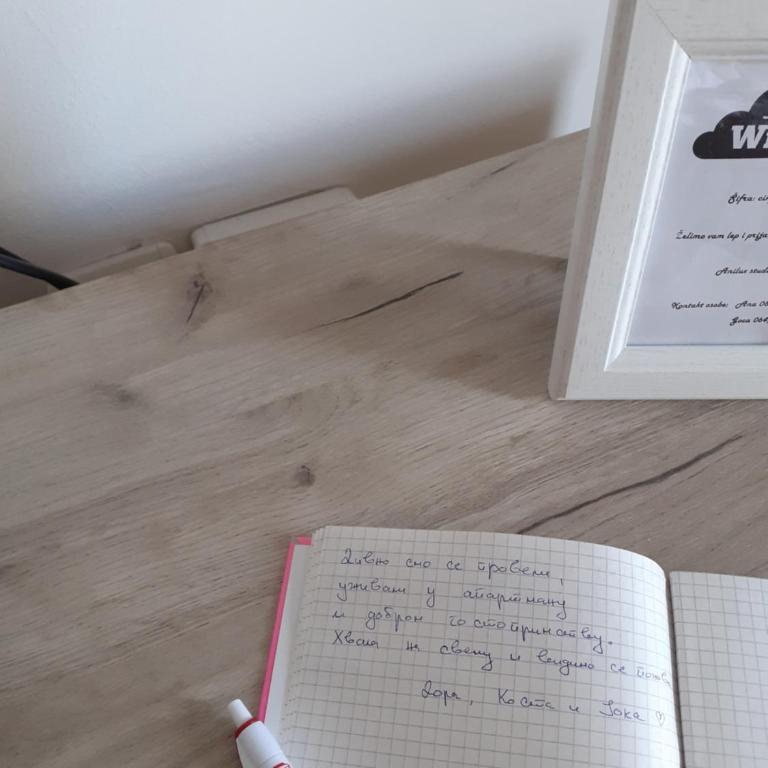 Wi
Šifra: ci
Želimo vam lep i prija
Anilux studi
Kontakt osobe: Ana 06
Goca 064
Дивно смо се провели,
уживали у апартману
и добром гостопримству.
Хвала на свему и видимо се
Дора, Коста и Јока ♡